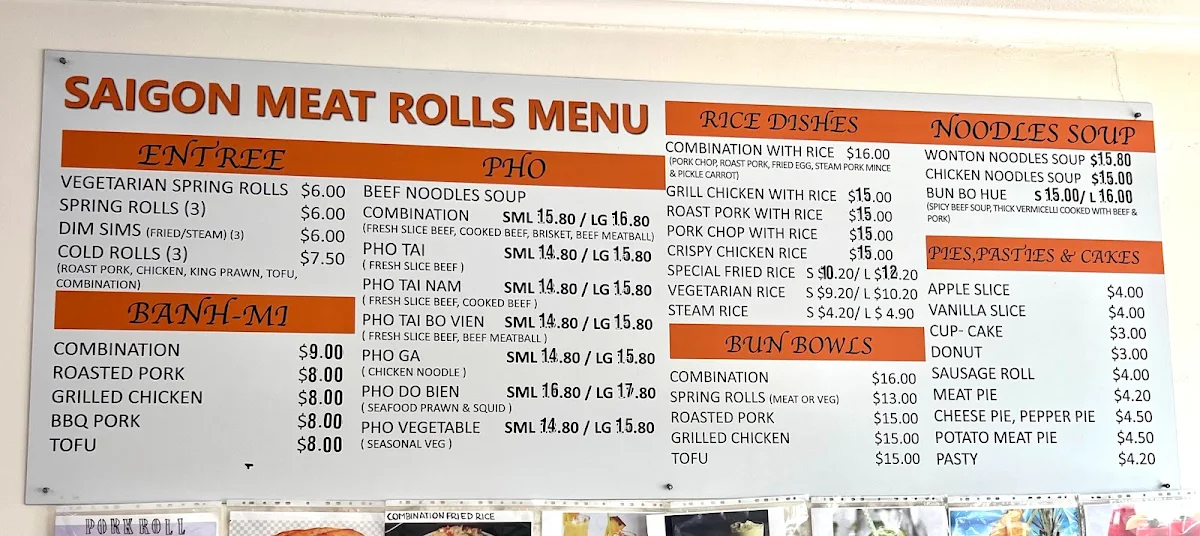 SAIGON MEAT ROLLS MENU
ENTREE
VEGETARIAN SPRING ROLLS $6.00
SPRING ROLLS (3) $6.00
DIM SIMS (FRIED/STEAM) (3) $6.00
COLD ROLLS (3) $7.50
(ROAST PORK, CHICKEN, KING PRAWN, TOFU,
COMBINATION)
BANH-MI
COMBINATION $9.00
ROASTED PORK $8.00
GRILLED CHICKEN $8.00
BBQ PORK $8.00
TOFU $8.00
PHO
BEEF NOODLES SOUP
COMBINATION SML 15.80 / LG 16.80
(FRESH SLICE BEEF, COOKED BEEF, BRISKET, BEEF MEATBALL)
PHO TAI SML 14.80 / LG 15.80
( FRESH SLICE BEEF )
PHO TAI NAM SML 14.80 / LG 15.80
( FRESH SLICE BEEF, COOKED BEEF )
PHO TAI BO VIEN SML 14.80 / LG 15.80
( FRESH SLICE BEEF, BEEF MEATBALL )
PHO GA SML 14.80 / LG 15.80
( CHICKEN NOODLE )
PHO DO BIEN SML 16.80 / LG 17.80
( SEAFOOD PRAWN & SQUID )
PHO VEGETABLE SML 14.80 / LG 15.80
( SEASONAL VEG )
RICE DISHES
COMBINATION WITH RICE $16.00
(PORK CHOP, ROAST PORK, FRIED EGG, STEAM PORK MINCE
& PICKLE CARROT)
GRILL CHICKEN WITH RICE $15.00
ROAST PORK WITH RICE $15.00
PORK CHOP WITH RICE $15.00
CRISPY CHICKEN RICE $15.00
SPECIAL FRIED RICE S $10.20/ L $12.20
VEGETARIAN RICE S $9.20/ L $10.20
STEAM RICE S $4.20/ L $ 4.90
BUN BOWLS
COMBINATION $16.00
SPRING ROLLS (MEAT OR VEG) $13.00
ROASTED PORK $15.00
GRILLED CHICKEN $15.00
TOFU $15.00
NOODLES SOUP
WONTON NOODLES SOUP $15.80
CHICKEN NOODLES SOUP $15.00
BUN BO HUE S 15.00/ L 16.00
(SPICY BEEF SOUP, THICK VERMICELLI COOKED WITH BEEF &
PORK)
PIES,PASTIES & CAKES
APPLE SLICE $4.00
VANILLA SLICE $4.00
CUP- CAKE $3.00
DONUT $3.00
SAUSAGE ROLL $4.00
MEAT PIE $4.20
CHEESE PIE, PEPPER PIE $4.50
POTATO MEAT PIE $4.50
PASTY $4.20
PORK ROLL
COMBINATION FRIED RICE